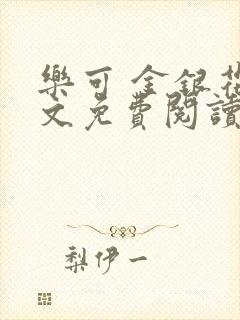 樂可 金銀花
文免費閱讀
梨伊一